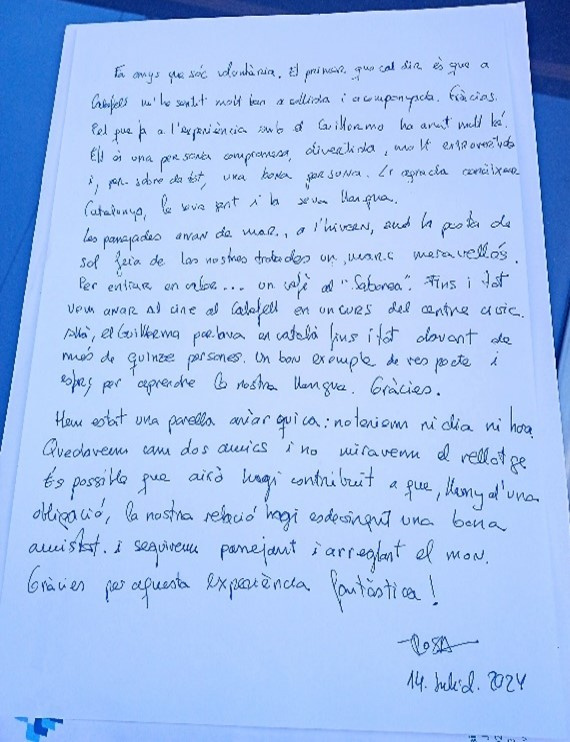 Fa anys que sóc voluntària. El primer que cal dir és que a
Calafell m'he sentit molt ben acollida i acompanyada. Gràcies.
Pel que fa a l'experiència amb el Guillermo ha anat molt bé.
Ell és una persona compromesa, divertida, molt extrovertida
i, per sobre de tot, una bona persona. Li agrada conèixer
Catalunya, la seva gent i la seva llengua.
Les passejades arran de mar, a l'hivern, amb la posta de
sol feia de les nostres trobades un marc meravellós.
Per entrar en calor... un cafè al "Saborea". Fins i tot
vam anar al cine al Calafell en un curs del centre cívic.
Allà, el Guillermo parlava en català fins i tot davant de
més de quinze persones. Un bon exemple de respecte i
esforç per aprendre la nostra llengua. Gràcies.
Hem estat una parella anàrquica: no teníem ni dia ni hora.
Quedàvem com dos amics i no miràvem el rellotge
És possible que això hagi contribuït a que, lluny d'una
obligació, la nostra relació hagi esdevingut una bona
amistat. i seguirem passejant i arreglant el mon.
Gràcies per aquesta experiència fantàstica!
ROSA
14. Juliol. 2024